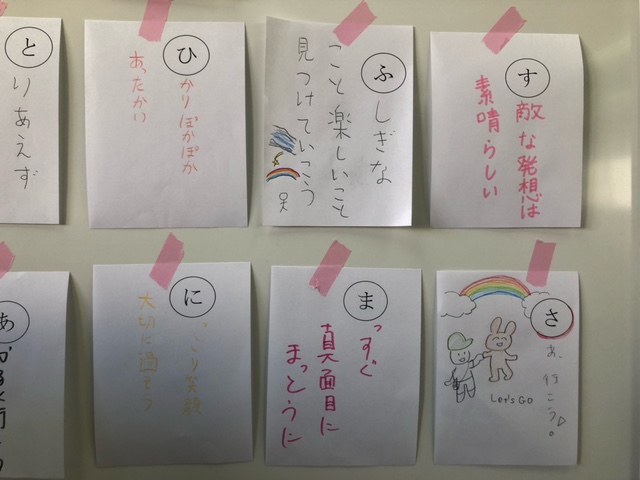 と
りあえず
ひ
かりぽかぽか
あったかい
ふ
しぎな
こと楽しいこと
見つけていこう
す
敵な発想は
素晴らしい
あ
かるく行
に
っこり笑顔
大切に過そう
ま
っすぐ
真面目に
まっとうに
さ
あ、行こう。
Let's Go